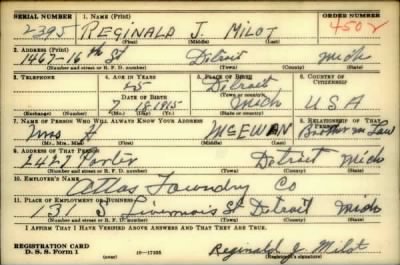 SERIAL NUMBER 1. NAME (Print) ORDER NUMBER
2395 REGINALD J. MILOT 4502
(First) (Middle) (Last)
2. ADDRESS (Print)
1467-16th St Detroit Mich
(Number and street or R. F. D. number) (Town) (County) (State)
3. TELEPHONE 4. AGE IN YEARS 5. PLACE OF BIRTH 6. COUNTRY OF CITIZENSHIP
25 Detroit
DATE OF BIRTH (Town or county)
7 18 1915 Mich USA
(Exchange) (Number) (Mo.) (Day) (Yr.) (State or country)
7. NAME OF PERSON WHO WILL ALWAYS KNOW YOUR ADDRESS 8. RELATIONSHIP OF THAT PERSON
MCEWAN Brother in Law
(Mr., Mrs., Miss) (First) (Middle) (Last)
9. ADDRESS OF THAT PERSON
2427 Porter Detroit Mich
(Number and street or R. F. D. number) (Town) (County) (State)
10. EMPLOYER'S NAME
Atlas Foundry Co
11. PLACE OF EMPLOYMENT OR BUSINESS
131 S. Livernois St Detroit Mich
(Number and street or R. F. D. number) (Town) (County) (State)
I AFFIRM THAT I HAVE VERIFIED ABOVE ANSWERS AND THAT THEY ARE TRUE.
REGISTRATION CARD
D. S. S. FORM 1 16-17105 Reginald J. Milot
(Registrant's signature)